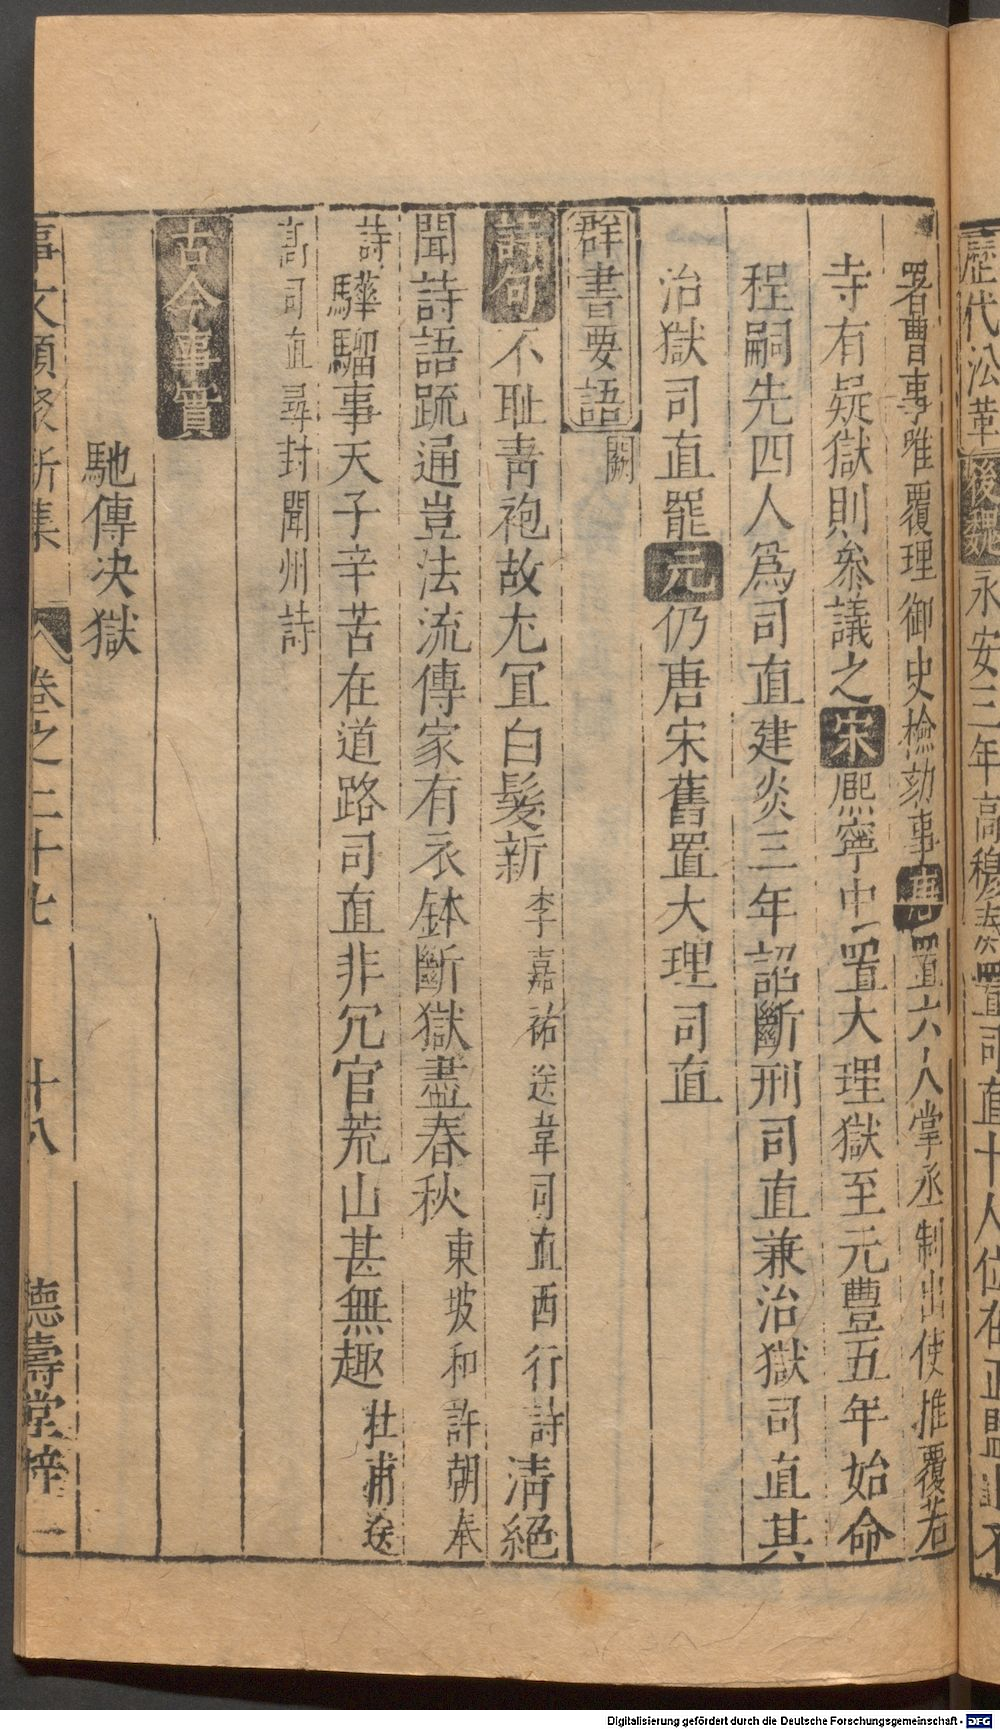 歷代㳂革 後魏 永安三年高穆奏置司直十人位在正監上不
署曹事唯覆理御史檢劾事 唐 置六人掌丞制出使推覆若
寺有疑獄則叅議之 宋 熈寧中置大理獄至元豐五年始命
程嗣先四人爲司直建炎三年詔斷刑司直兼治獄司直其
治獄司直罷 元 仍唐宋舊置大理司直
群書要語 闕
詩句 不耻靑袍故尤冝白髮新 李嘉祐送韋司直西行詩 淸絕
聞詩語䟽通豈法流傳家有衣鉢斷獄盡春秋 東坡和許朝奉
詩 驊騮事天子辛苦在道路司直非冗官荒山甚無趣 杜甫送
髙司直尋封閬州詩
古今事實
馳傳决獄
事文類聚新集 卷之二十七 十八 德壽堂梓
Digitalisierung gefördert durch die Deutsche Forschungsgemeinschaft - DFG